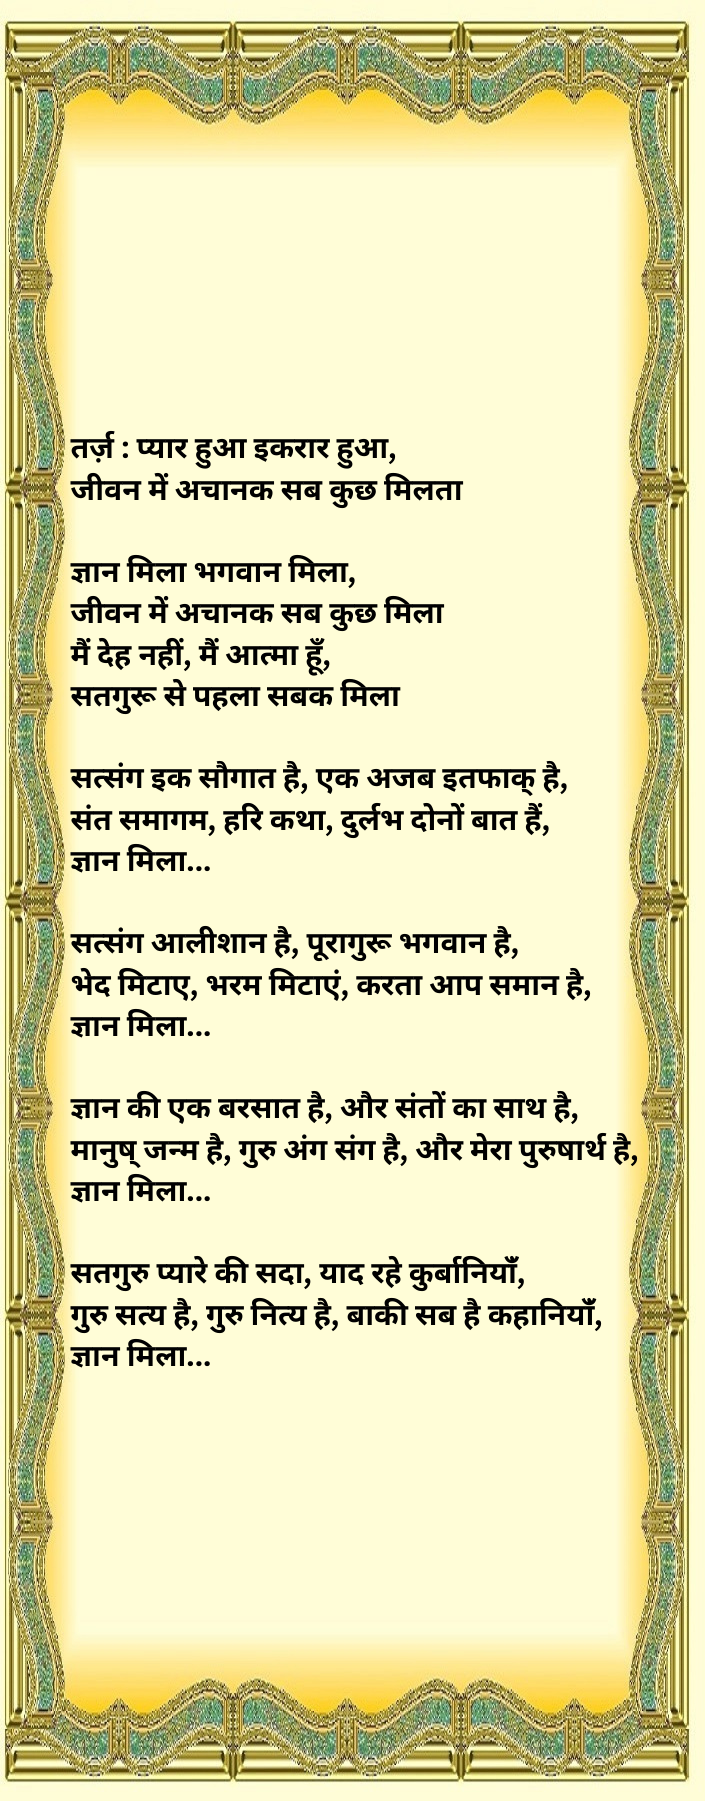 तर्ज़ : प्यार हुआ इकरार हुआ,
जीवन में अचानक सब कुछ मिलता
ज्ञान मिला भगवान मिला,
जीवन में अचानक सब कुछ मिला
मैं देह नहीं, मैं आत्मा हूँ,
सतगुरू से पहला सबक मिला
सत्संग इक सौगात है, एक अजब इतफाक् है,
संत समागम, हरि कथा, दुर्लभ दोनों बात हैं,
ज्ञान मिला...
सत्संग आलीशान है, पूरागुरू भगवान है,
भेद मिटाए, भरम मिटाएं, करता आप समान है,
ज्ञान मिला...
ज्ञान की एक बरसात है, और संतों का साथ है,
मानुष् जन्म है, गुरु अंग संग है, और मेरा पुरुषार्थ है,
ज्ञान मिला...
सतगुरु प्यारे की सदा, याद रहे कुर्बानियाँ,
गुरु सत्य है, गुरु नित्य है, बाकी सब है कहानियाँ,
ज्ञान मिला...